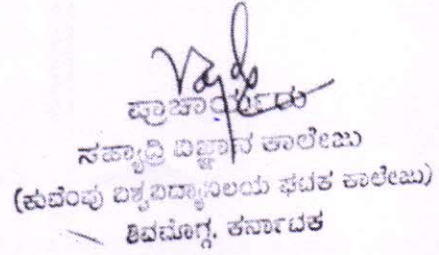 ಪ್ರಾಚಾರ್ಯರು
ಸಹ್ಯಾದ್ರಿ ವಿಜ್ಞಾನ ಕಾಲೇಜು
(ಕುವೆಂಪು ವಿಶ್ವವಿದ್ಯಾನಿಲಯ ಘಟಕ ಕಾಲೇಜು)
ಶಿವಮೊಗ್ಗ, ಕರ್ನಾಟಕ